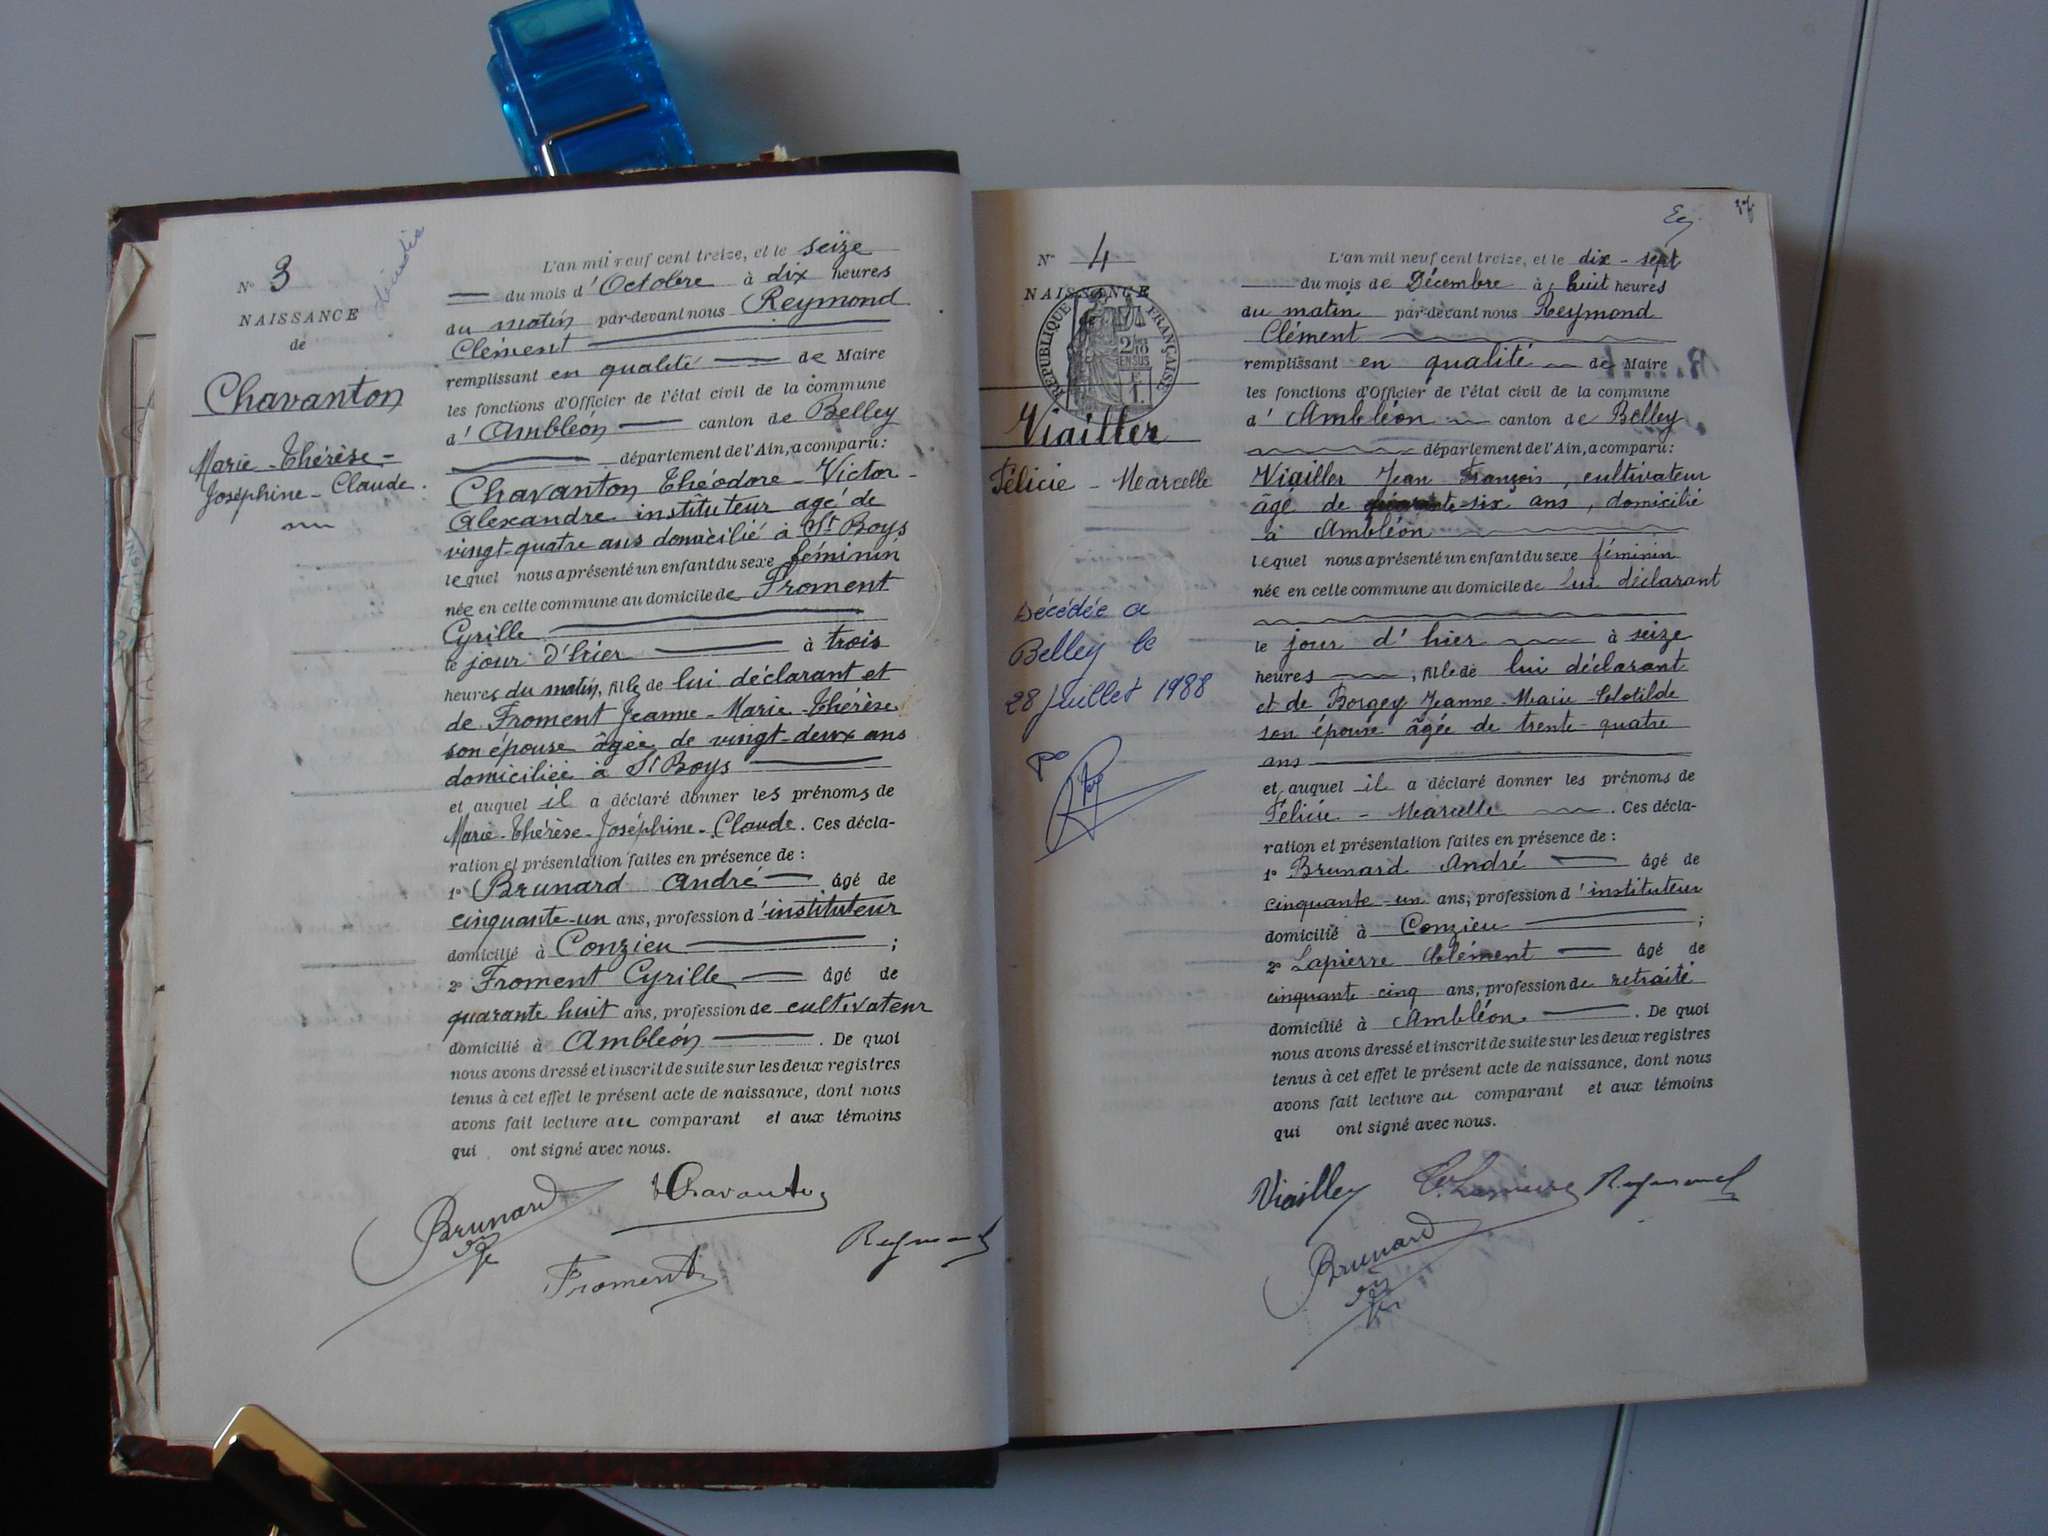 N° 3
NAISSANCE
de
Chavanton
Marie-Thérèse-
Joséphine-Claude.
L'an mil neuf cent treize, et le seize
du mois d'Octobre à dix heures
du matin par-devant nous Reymond
Clément
remplissant en qualité de Maire
les fonctions d'Officier de l'état civil de la commune
d'Ambléon canton de Belley
département de l'Ain, a comparu:
Chavanton Théodore-Victor-
Alexandre instituteur agé de
vingt-quatre ans domicilié à St Boys
lequel nous a présenté un enfant du sexe féminin
née en cette commune au domicile de Froment
Cyrille
le jour d'hier à trois
heures du matin, fille de lui déclarant et
de Froment Jeanne-Marie-Thérèse
son épouse âgée de vingt-deux ans
domiciliée à St Boys
et auquel il a déclaré donner les prénoms de
Marie-Thérèse-Joséphine-Claude. Ces décla-
ration et présentation faites en présence de :
1° Brunard André âgé de
cinquante-un ans, profession d'instituteur
domicilié à Conzieu ;
2° Froment Cyrille âgé de
quarante huit ans, profession de cultivateur
domicilié à Ambléon . De quoi
nous avons dressé et inscrit de suite sur les deux registres
tenus à cet effet le présent acte de naissance, dont nous
avons fait lecture au comparant et aux témoins
qui ont signé avec nous.
Brunard
Chavanton
Froment
Reymond
N° 4
NAISSANCE
RÉPUBLIQUE FRANÇAISE
Viailler
Félicie - Marcelle
Décédée a
Belley le
28 Juillet 1988
L'an mil neuf cent treize, et le dix-sept
du mois de Décembre à huit heures
du matin par-devant nous Reymond
Clément
remplissant en qualité de Maire
les fonctions d'Officier de l'état civil de la commune
d'Ambléon canton de Belley
département de l'Ain, a comparu:
Viailler Jean François, cultivateur
âgé de six ans, domicilié
à Ambléon
lequel nous a présenté un enfant du sexe féminin
née en cette commune au domicile de lui déclarant
le jour d'hier à seize
heures , fille de lui déclarant
et de Borgey Jeanne-Marie-Clotilde
son épouse âgée de trente-quatre
ans
et auquel il a déclaré donner les prénoms de
Félicie - Marcelle . Ces décla-
ration et présentation faites en présence de :
1° Brunard André âgé de
cinquante-un ans, profession d'instituteur
domicilié à Conzieu ;
2° Lapierre Clément âgé de
cinquante-cinq ans, profession de retraité
domicilié à Ambléon . De quoi
nous avons dressé et inscrit de suite sur les deux registres
tenus à cet effet le présent acte de naissance, dont nous
avons fait lecture au comparant et aux témoins
qui ont signé avec nous.
Viailler
Reymond
Brunard